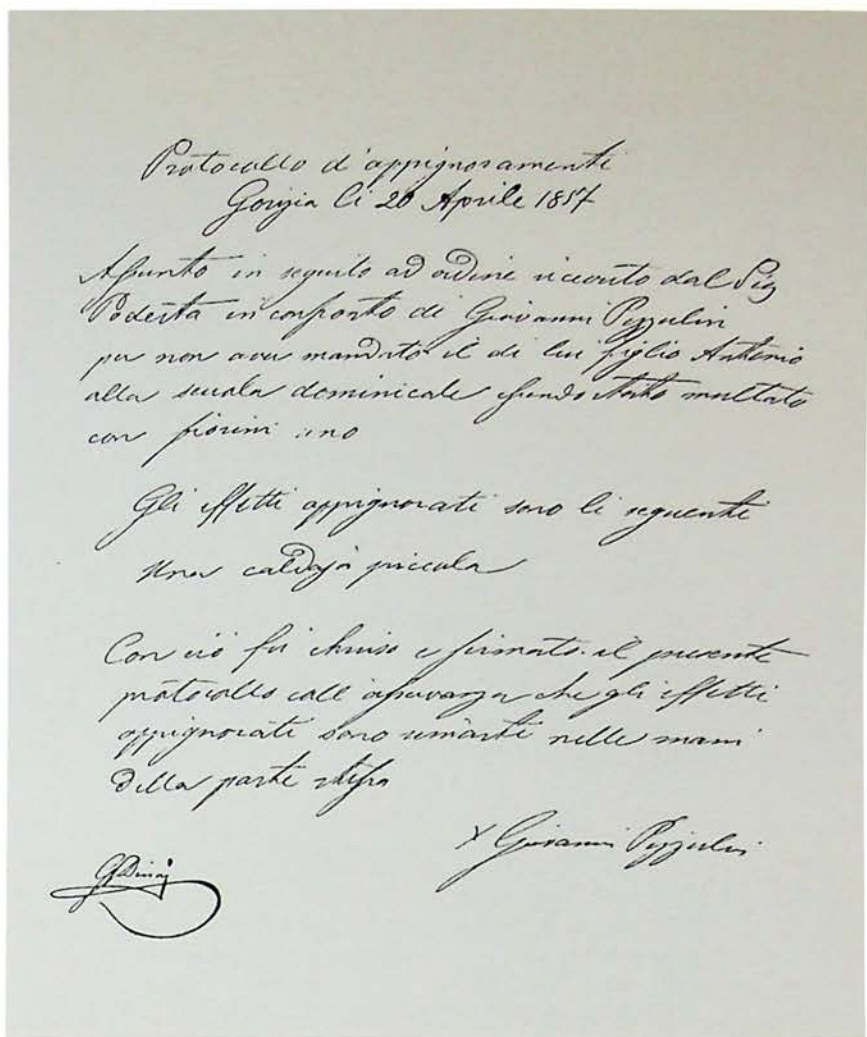 Protocollo d'appignoramenti
Gorizia li 20 Aprile 1857
Assunto in seguito ad ordine ricevuto dal Sig
Podestà in confronto di Giovanni Pizzulin
per non aver mandato il di lui figlio Antonio
alla scuola dominicale essendo stato multato
con fiorini uno
Gli effetti appignorati sono li seguenti
Una caldaja piccula
Con ciò fu chiuso e firmato il presente
protocollo coll' osservanza che gli effetti
appignorati sono rimasti nelle mani
della parte stessa
x Giovanni Pizzulin